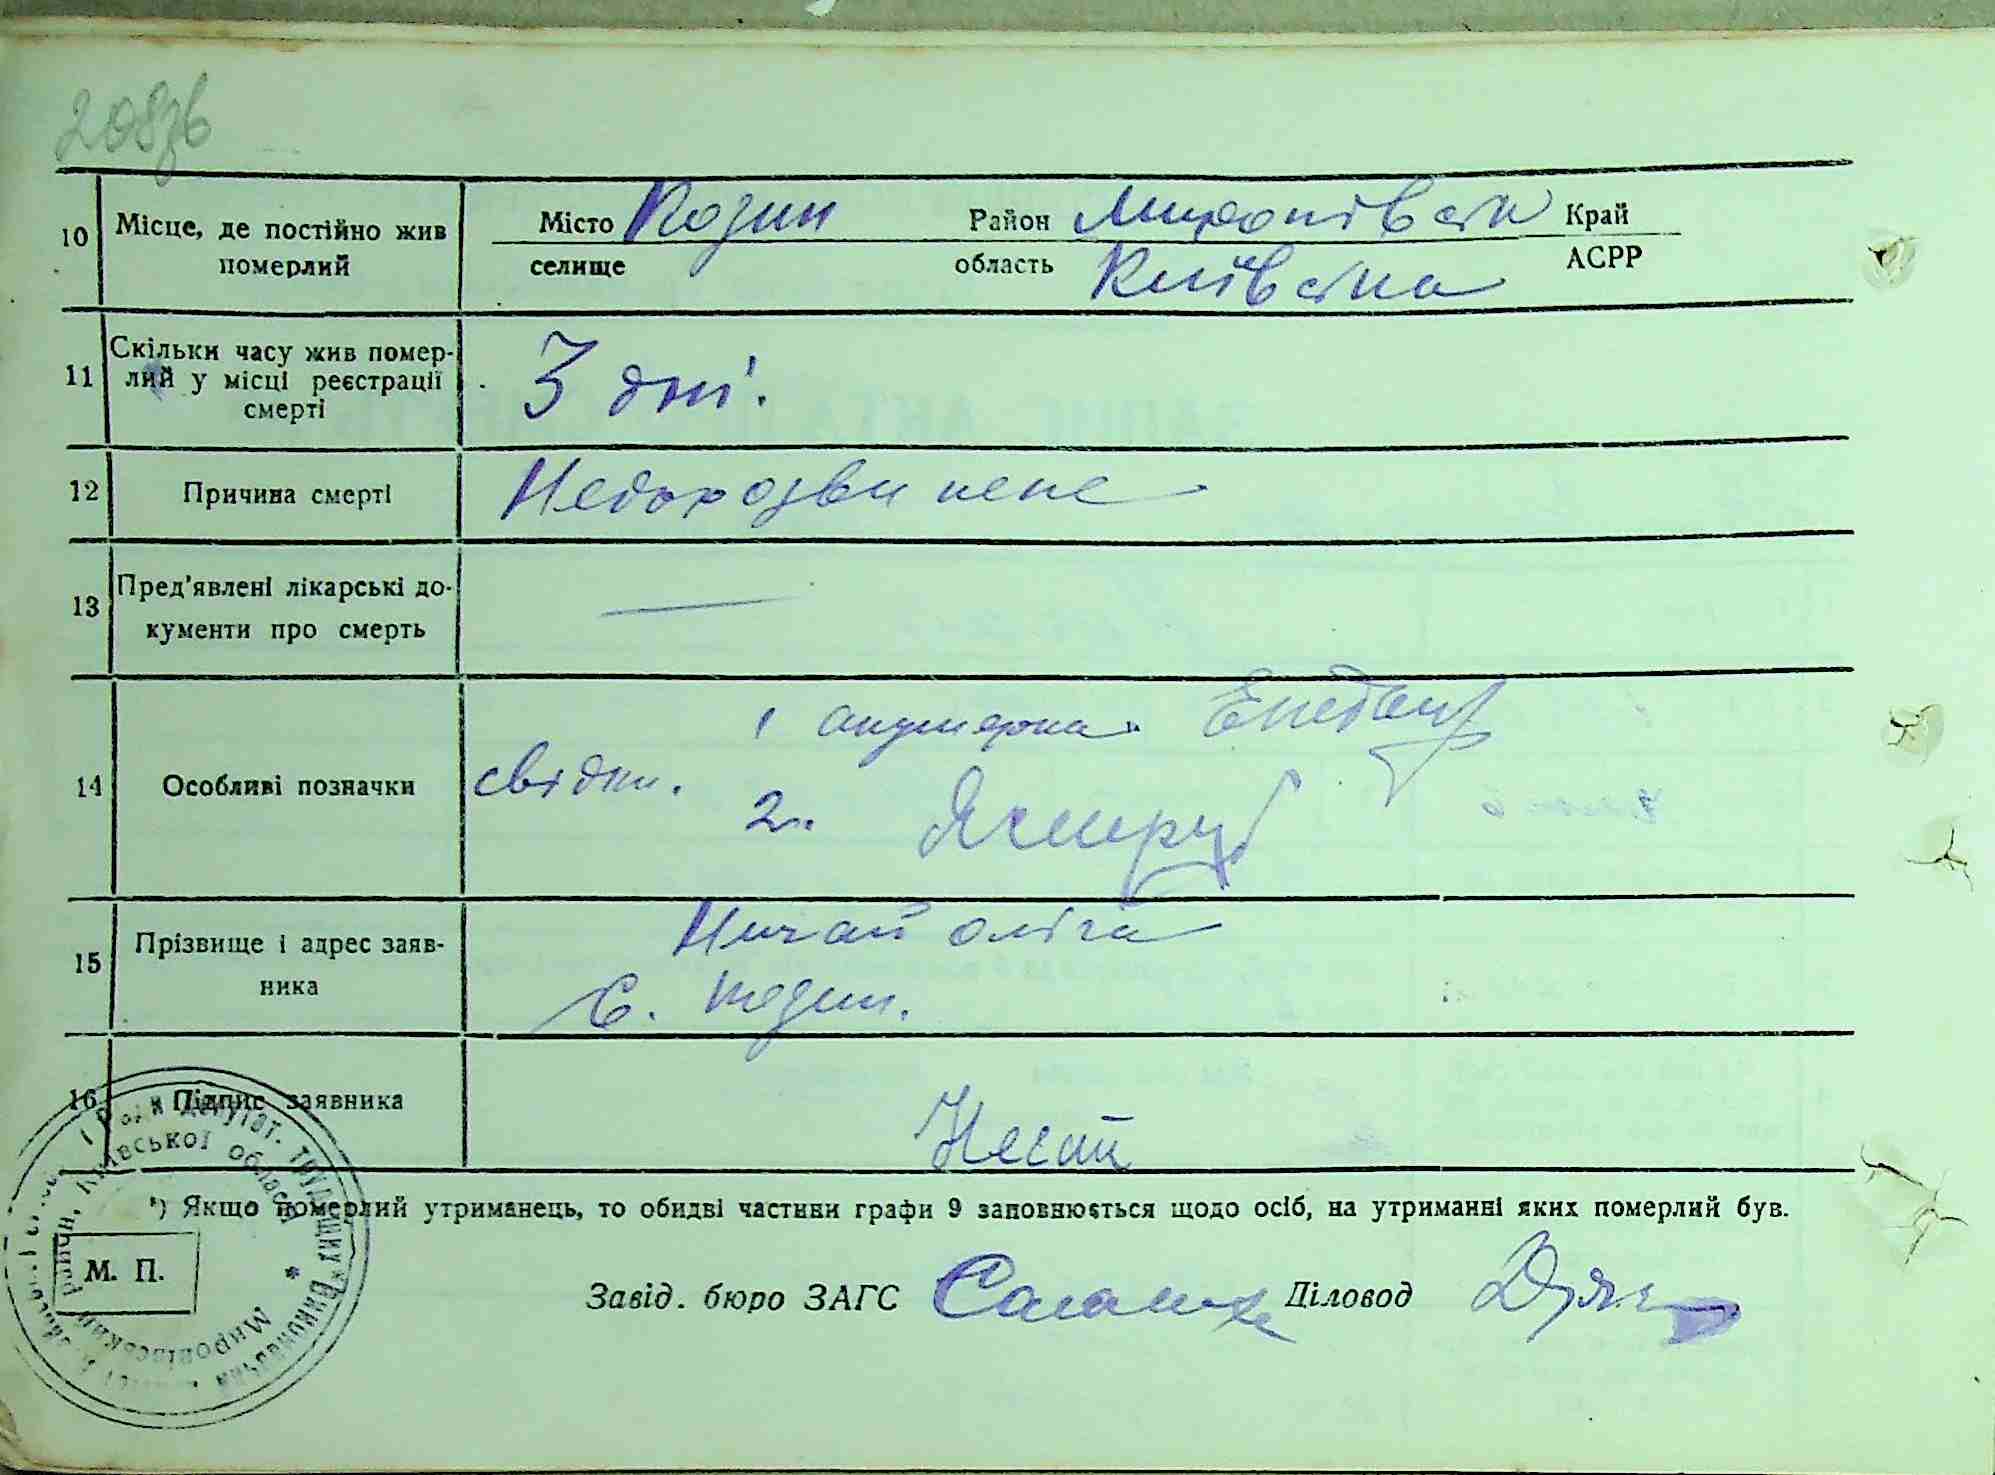 208зв
10 Місце, де постійно жив Місто Козин Район Миронівськ Край
померлий селище область Київська АСРР
Скільки часу жив помер-
11 лий у місці реєстрації 3 дні.
смерті
12 Причина смерті Недорозвинене
13 Пред'явлені лікарські до- —
кументи про смерть
1 акушерка
14 Особливі позначки свідки.
2.
15 Прізвище і адрес заяв- Ничай Оліга
ника с. Козин.
16 Підпис заявника
*) Якщо померлий утриманець, то обидві частини графи 9 заповнюється щодо осіб, на утриманні яких померлий був.
М. П.
Завід. бюро ЗАГС Діловод
Ради Депутат. Трудящих Виконавчий
район, Київської області * Миронівський